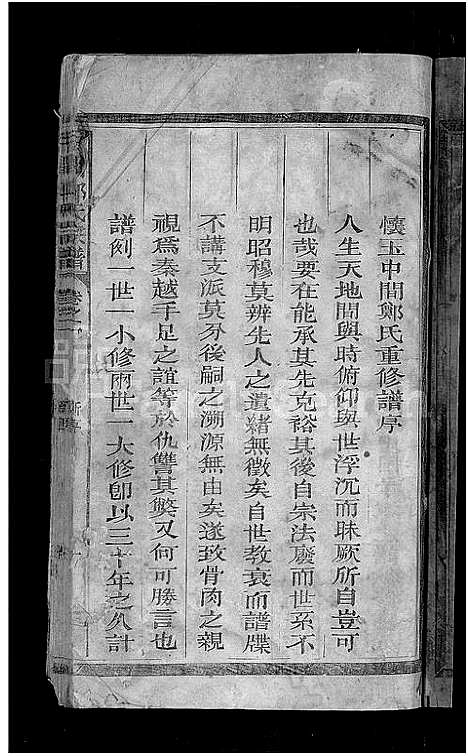 懷玉中閭鄭氏重修譜序
人生天地間與時俯仰與世浮沉而昧厥所自豈可
也哉要在能承其先克裕其後自宗法廢而世系不
明昭穆莫辨先人之遺緒無徵矣自世教衰而譜牒
不講支派莫分後嗣之溯源無由矣遂致骨肉之親
視爲秦越手足之誼等於仇讐其弊又何可勝言也
譜例一世一小修兩世一大修卽以三十年之久計
鄭氏宗譜
卷之一